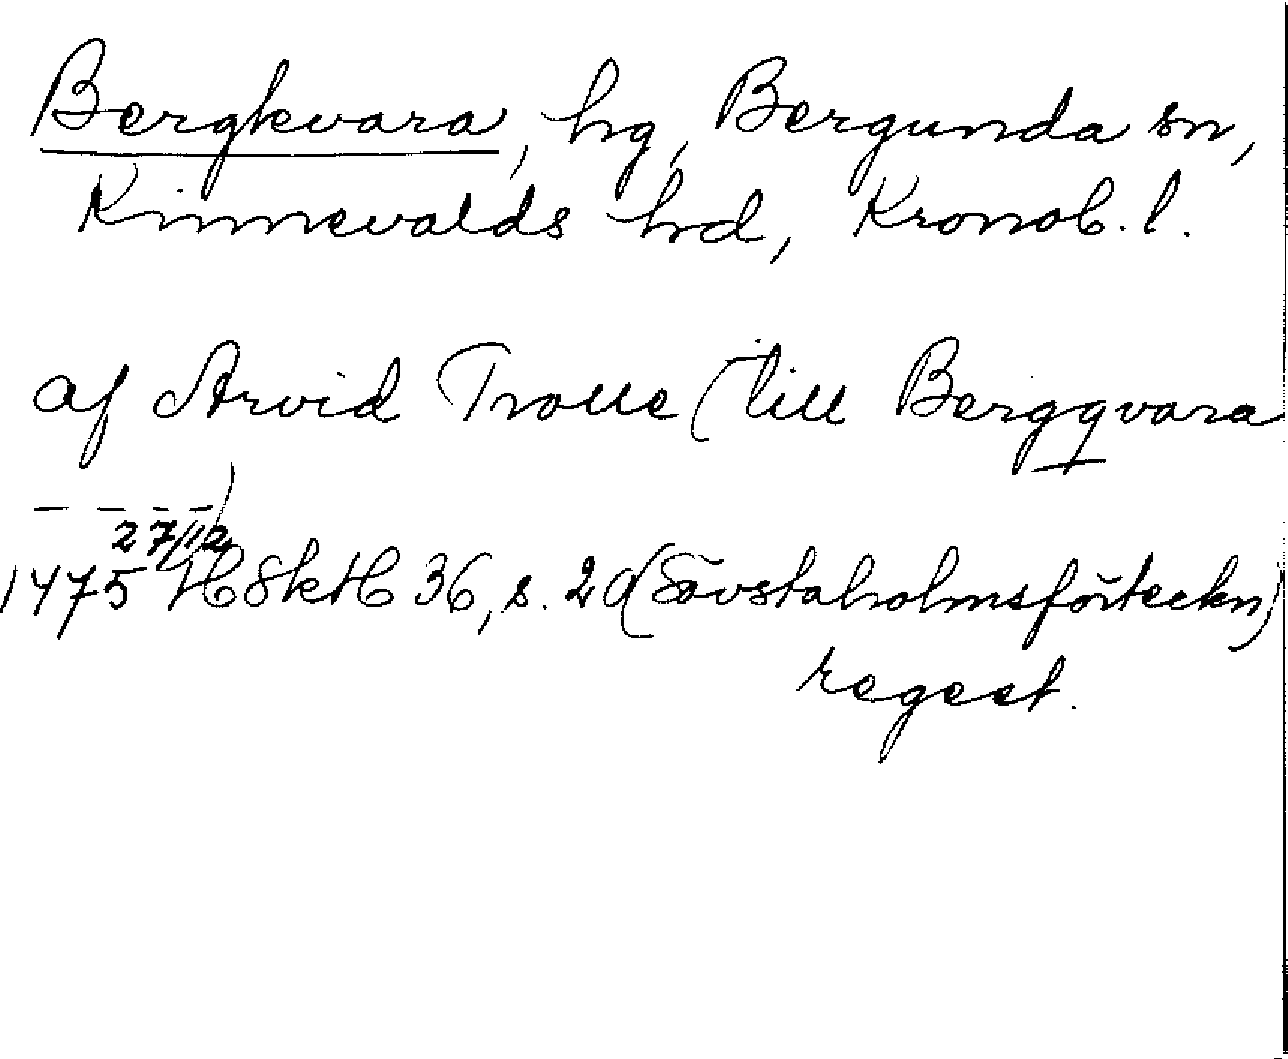 Bergkvara, hg, Bergunda sn,
Kinnevalds hd, Kronob. l.
af Arvid Trolle (till Bergqvara
– – – –)
27/12
1475 HSkH 36, s. 20 (Sävstaholmsförteckn)
regest.